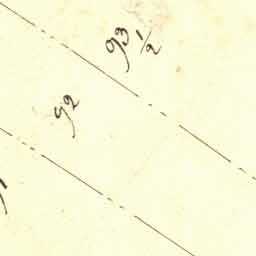 93 1/2
92